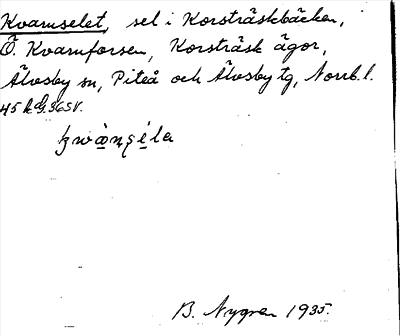 Kvarnselet, sel i Korsträskbäcken,
Ö. Kvarnforsen, Korsträsk ägor,
Älvsby sn, Piteå och Älvsby tg, Norrb. l.
B. Nygren 1935.